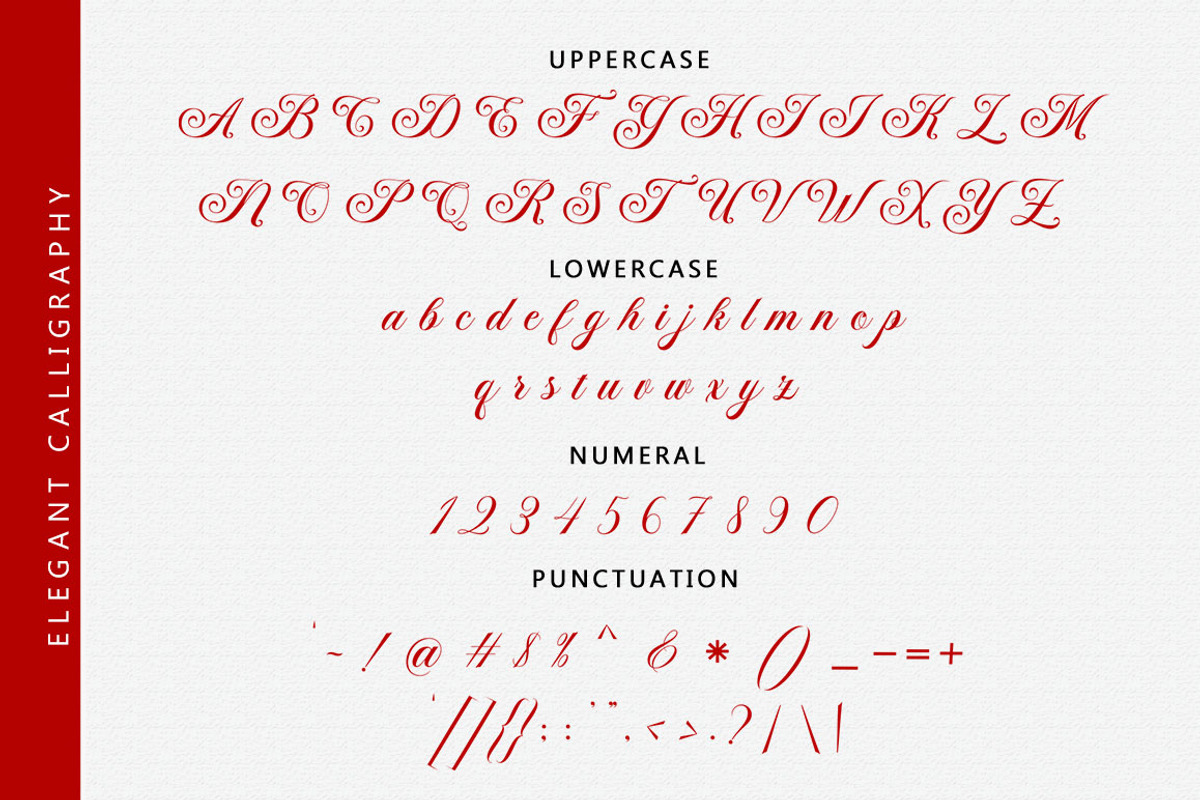 ELEGANT CALLIGRAPHY
UPPERCASE
A B C D E F G H I J K L M
N O P Q R S T U V W X Y Z
LOWERCASE
a b c d e f g h i j k l m n o p
q r s t u v w x y z
NUMERAL
1 2 3 4 5 6 7 8 9 0
PUNCTUATION
` ~ ! @ # $ % ^ & * ( ) _ - = +
` [ ] { } ; : ' " , < > . ? / \ |